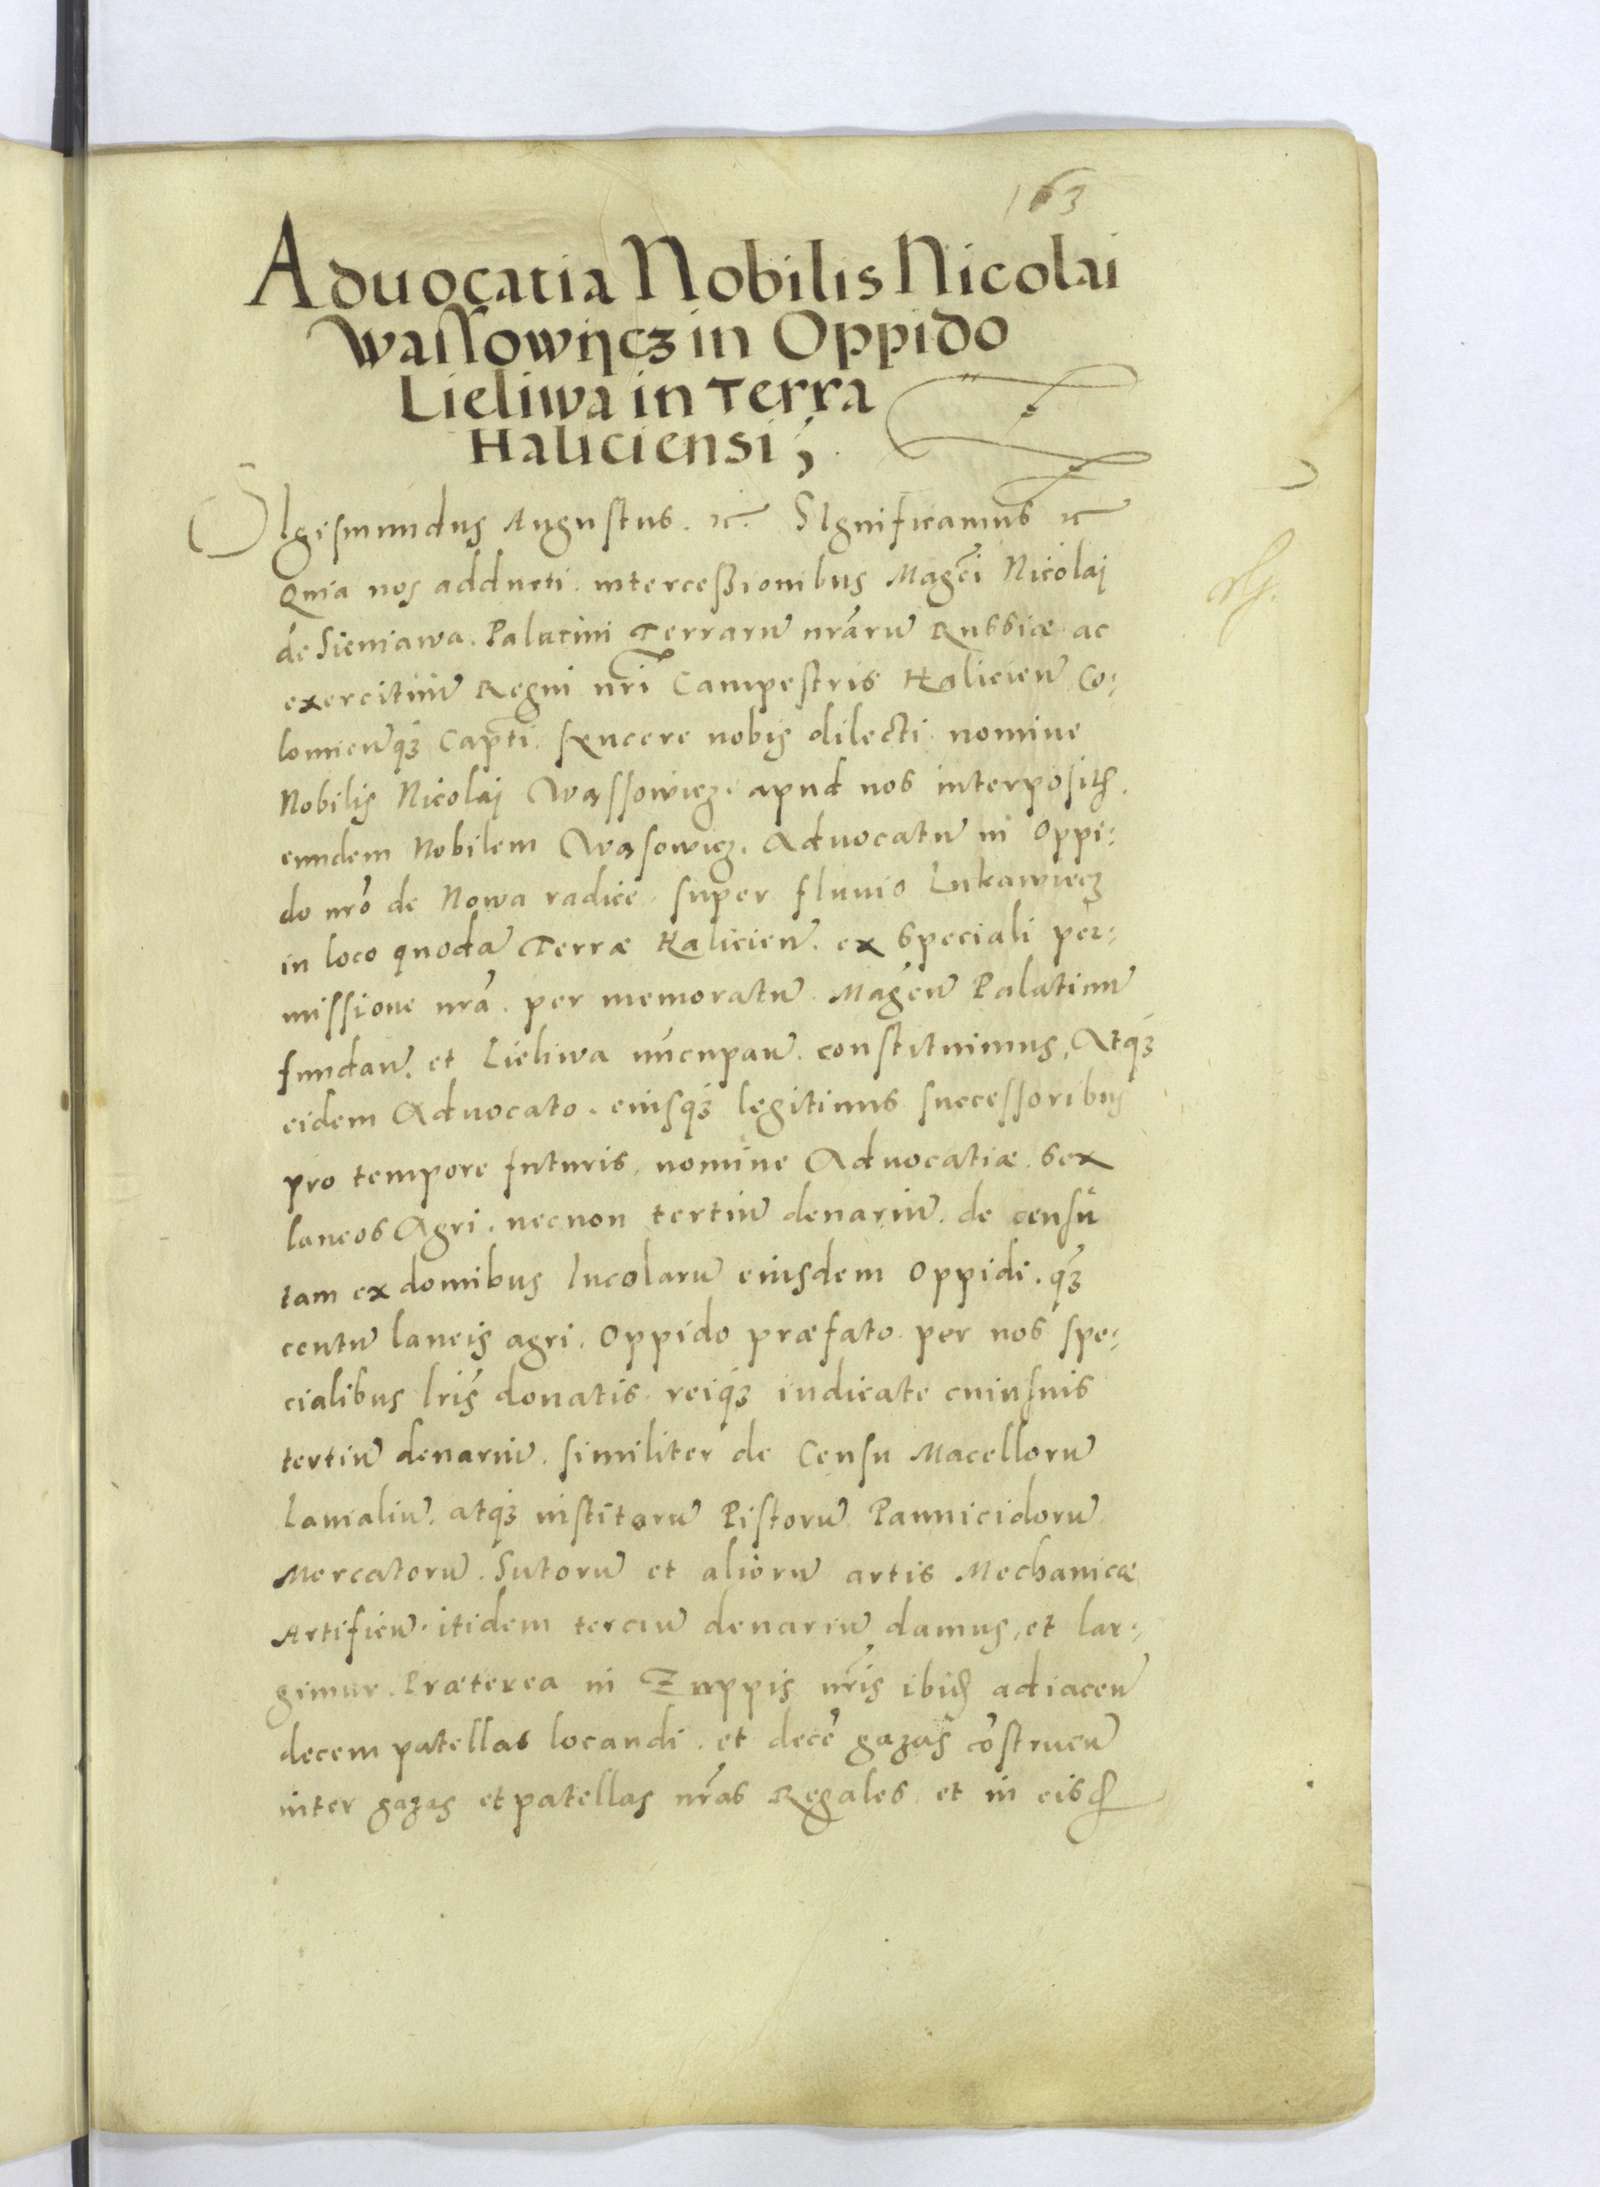 163
Aduocatia Nobilis Nicolai
Wassowycz in Oppido
Lieliwa in Terra
Haliciensi;
Sigismundus Augustus. etc. SIgnificamus etc
Quia nos adducti intercessionibus Mag̃ci Nicolaj
de Sieniawa. Palatini Terrarũ nr̃arũ Russiæ ac
exercituũ Regni nr̃i Campestris Halicien̄ Co:
lomien̄q3 Capt̃i. syncere nobis dilecti nomine
Nobilis Nicolaj Wassowicz. apud nos interpositis.
eundem Nobilem Wasowicz. Aduocatũ in Oppi:
do nr̃o de Nowa radice. super fluuio Lukawiecz
in loco quodã Terræ Halicien̄. ex speciali per:
missione nr̃a. per memoratũ. Mag̃cũ Palatinũ
fundan̄. et Lieliwa nũcupan̄. constituimus, Atq3
eidem Aduocato. eiusq3 legitimis successoribus
pro tempore futuris, nomine Aduocatiæ. sex
laneos Agri. necnon tertiũ denariũ. de censu
tam ex domibus Incolarũ eiusdem Oppidi. q̃3
centũ laneis agri. Oppido præfato per nos spe:
cialibus lr̃is donatis. reiq3 iudicate cuiusuis
tertiũ denariũ. similiter de Censu Macellorũ
Lanialiũ. atq3 institorũ Pistorũ Pannicidorũ
Mercatorũ. Sutorũ et aliorũ artis Mechanicæ
Artificũ. itidem terciũ denariũ damus, et lar:
gimur. Præterea in Zuppis nr̃is ibid̃ adiacen̄
decem patellas locandi. et decẽ gazas cõstruen̄
inter gazas et patellas nr̃as Regales et in eisd̃